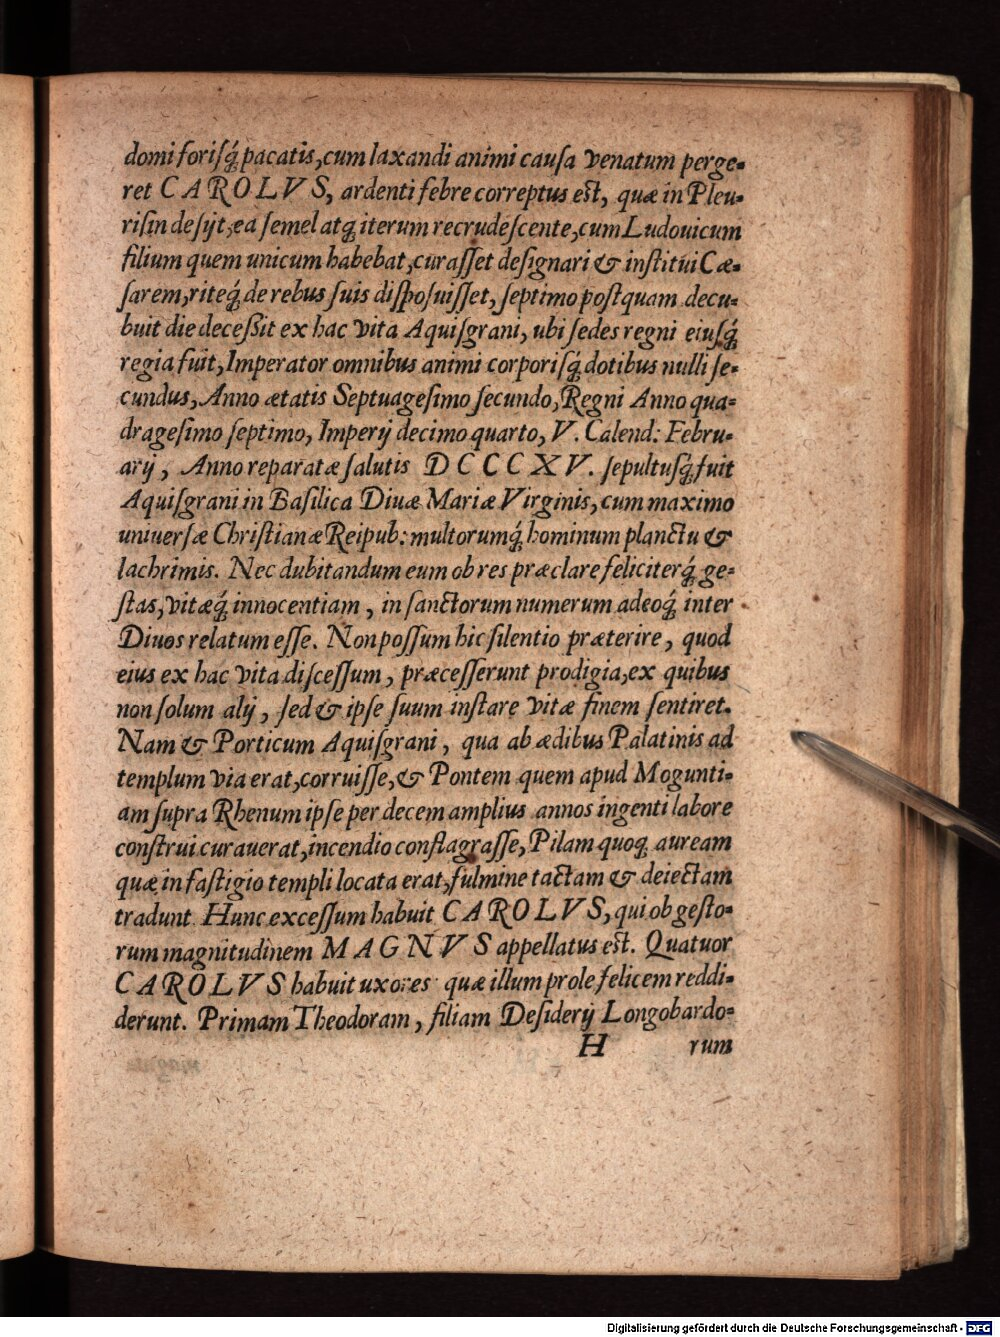 domi foriſq́; pacatis, cum laxandi animi cauſa venatum perge⸗
ret CAROLVS, ardenti febre correptus est, quæ in Pleu⸗
riſin deſijt, ea ſemel atq; iterum recrudeſcente, cum Ludouicum
filium quem unicum habebat, curaſſet deſignari & inſtitui Cæ⸗
ſarem, riteq́; de rebus ſuis diſpoſuiſſet, ſeptimo poſtquam decu⸗
buit die deceſſit ex hac vita Aquiſgrani, ubi ſedes regni eiuſq́;
regia fuit, Imperator omnibus animi corporiſq́; dotibus nulli ſe⸗
cundus, Anno ætatis Septuageſimo ſecundo, Regni Anno qua⸗
drageſimo ſeptimo, Imperij decimo quarto, V. Calend: Febru⸗
arij, Anno reparatæ ſalutis DCCCXV. ſepultuſq́; fuit
Aquiſgrani in Baſilica Diuæ Mariæ Virginis, cum maximo
uniuerſæ Chriſtianæ Reipub: multorumq́; hominum planctu &
lachrimis. Nec dubitandum eum ob res præclare feliciterq́; ge⸗
ſtas, vitæq́; innocentiam, in ſanctorum numerum adeoq́; inter
Diuos relatum eſſe. Non poſſum hic ſilentio præterire, quod
eius ex hac vita diſceſſum, præceſſerunt prodigia, ex quibus
non ſolum alij, ſed & ipſe ſuum inſtare vitæ finem ſentiret.
Nam & Porticum Aquiſgrani, qua ab ædibus Palatinis ad
templum via erat, corruiſſe, & Pontem quem apud Mogunti⸗
am ſupra Rhenum ipſe per decem amplius annos ingenti labore
conſtrui curauerat, incendio conflagraſſe, Pilam quoq; auream
quæ in faſtigio templi locata erat, fulmine tactam & deiectam
tradunt. Hunc exceſſum habuit CAROLVS, qui ob geſto⸗
rum magnitudinem MAGNVS appellatus est. Quatuor
CAROLVS habuit uxores quæ illum prole felicem reddi⸗
derunt. Primam Theodoram, filiam Deſiderij Longobardo⸗
H rum
Digitalisierung gefördert durch die Deutsche Forschungsgemeinschaft - DFG